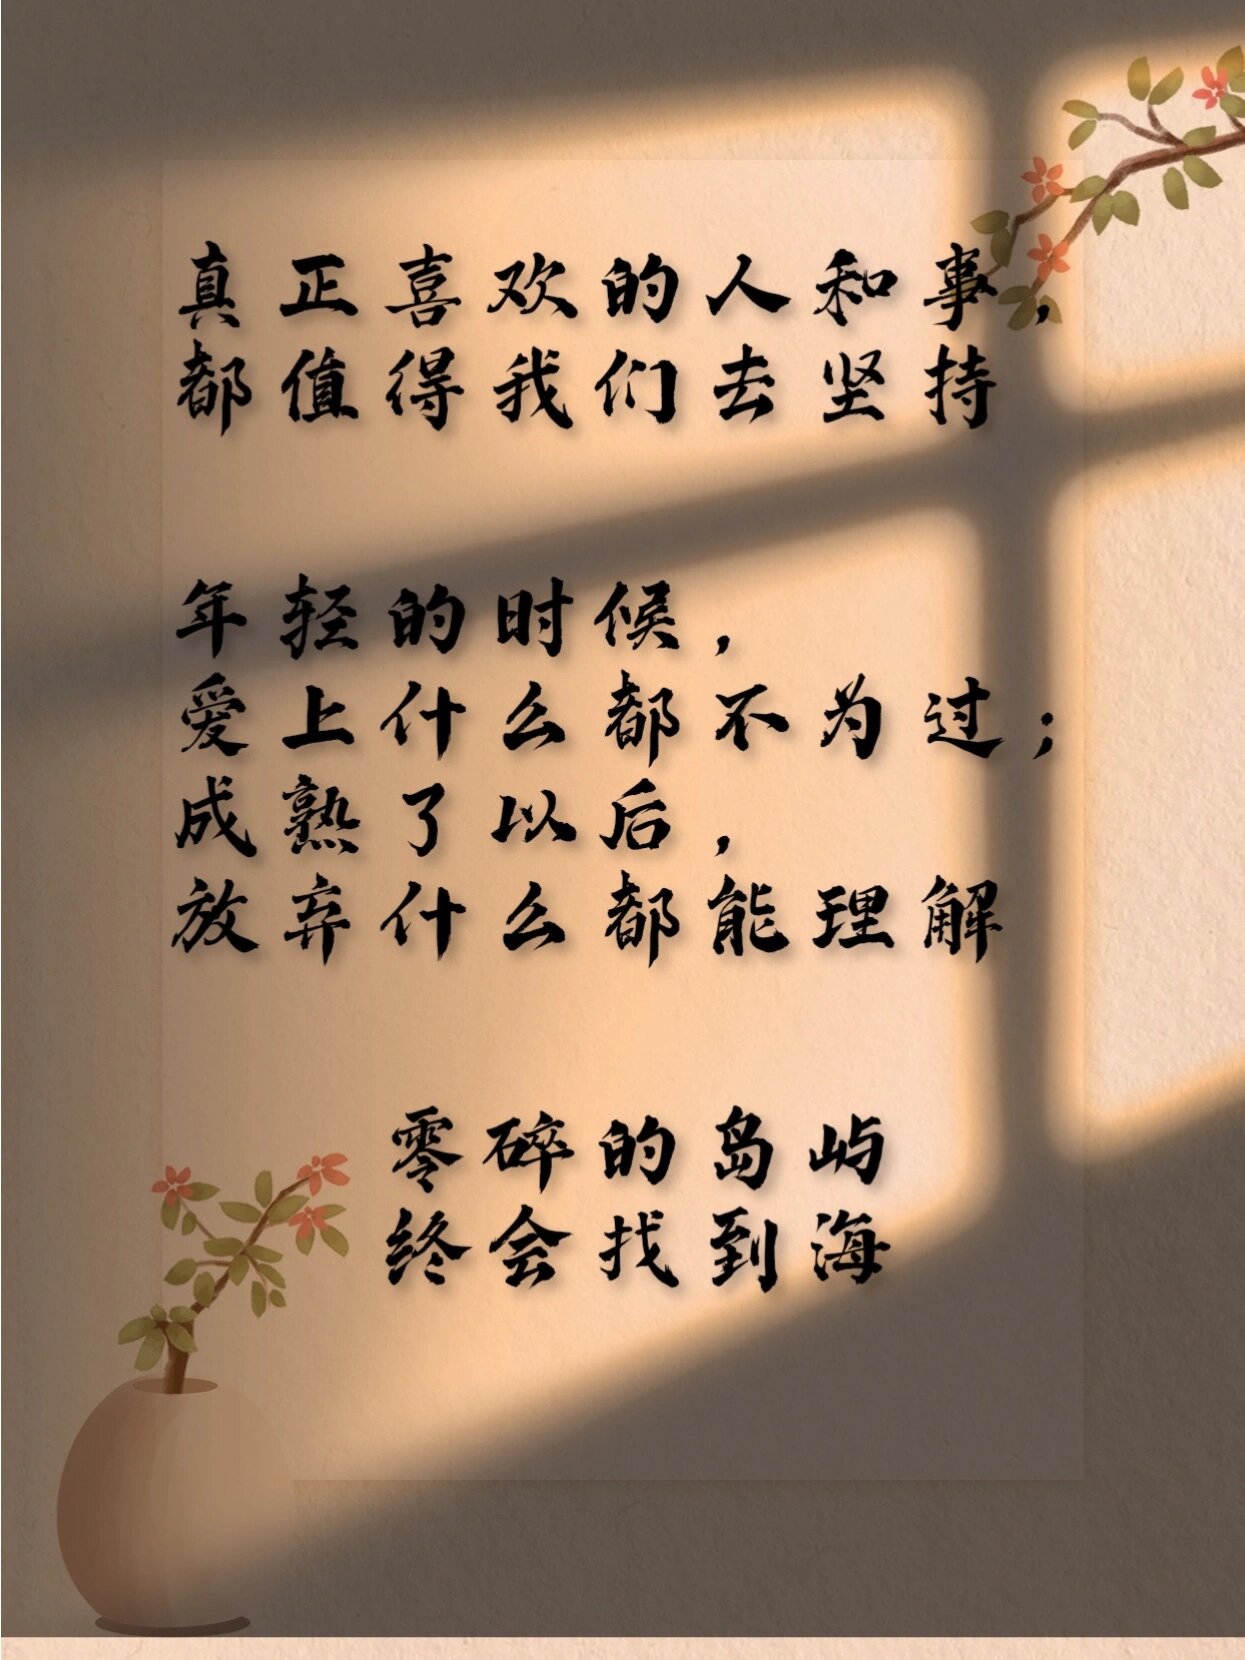 真正喜欢的人和事，
都值得我们去坚持
年轻的时候，
爱上什么都不为过；
成熟了以后，
放弃什么都能理解
零碎的岛屿
终会找到海